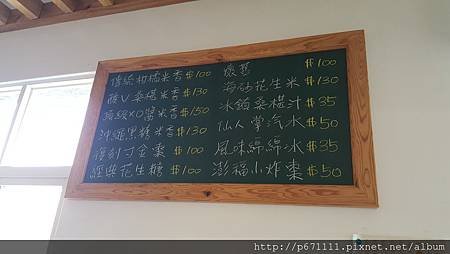 傳統柑糯米香 $100
酸V桑椹米香 $130
頂級XO醬米香 $150
沖繩黑糖米香 $130
復刻寸金棗 $100
經典花生糖 $100
$100
海砂花生米 $130
冰鎮桑椹汁 $35
仙人掌汽水 $50
風味綿綿冰 $35
澎福小炸棗 $50
http://p671111.pixnet.net/album